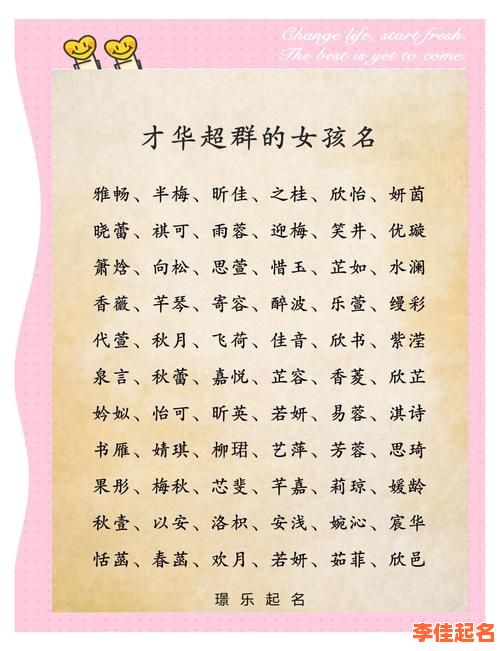 Change life, start fresh.
The best is yet to come.
才华超群的女孩名
雅畅、半梅、昕佳、之桂、欣怡、妍茵
晓蕾、祺可、雨蓉、迎梅、笑井、优璇
箫焓、向松、思萱、惜玉、芷如、水澜
香薇、芊琴、寄容、醉波、乐萱、缦彩
代萱、秋月、飞荷、佳音、欣书、紫滢
泉言、秋蕾、嘉悦、芷容、香菱、欣芷
妗姒、怡可、昕英、若妍、易蓉、淇诗
书雁、婧琪、柳珺、艺萍、芳蓉、思琦
果彤、梅秋、芯斐、芊嘉、莉琼、媛龄
秋壹、以安、洛枳、安浅、婉沁、宸华
恬菡、春菡、欢月、若妍、茹菲、欣邑
璟乐起名
李佳起名